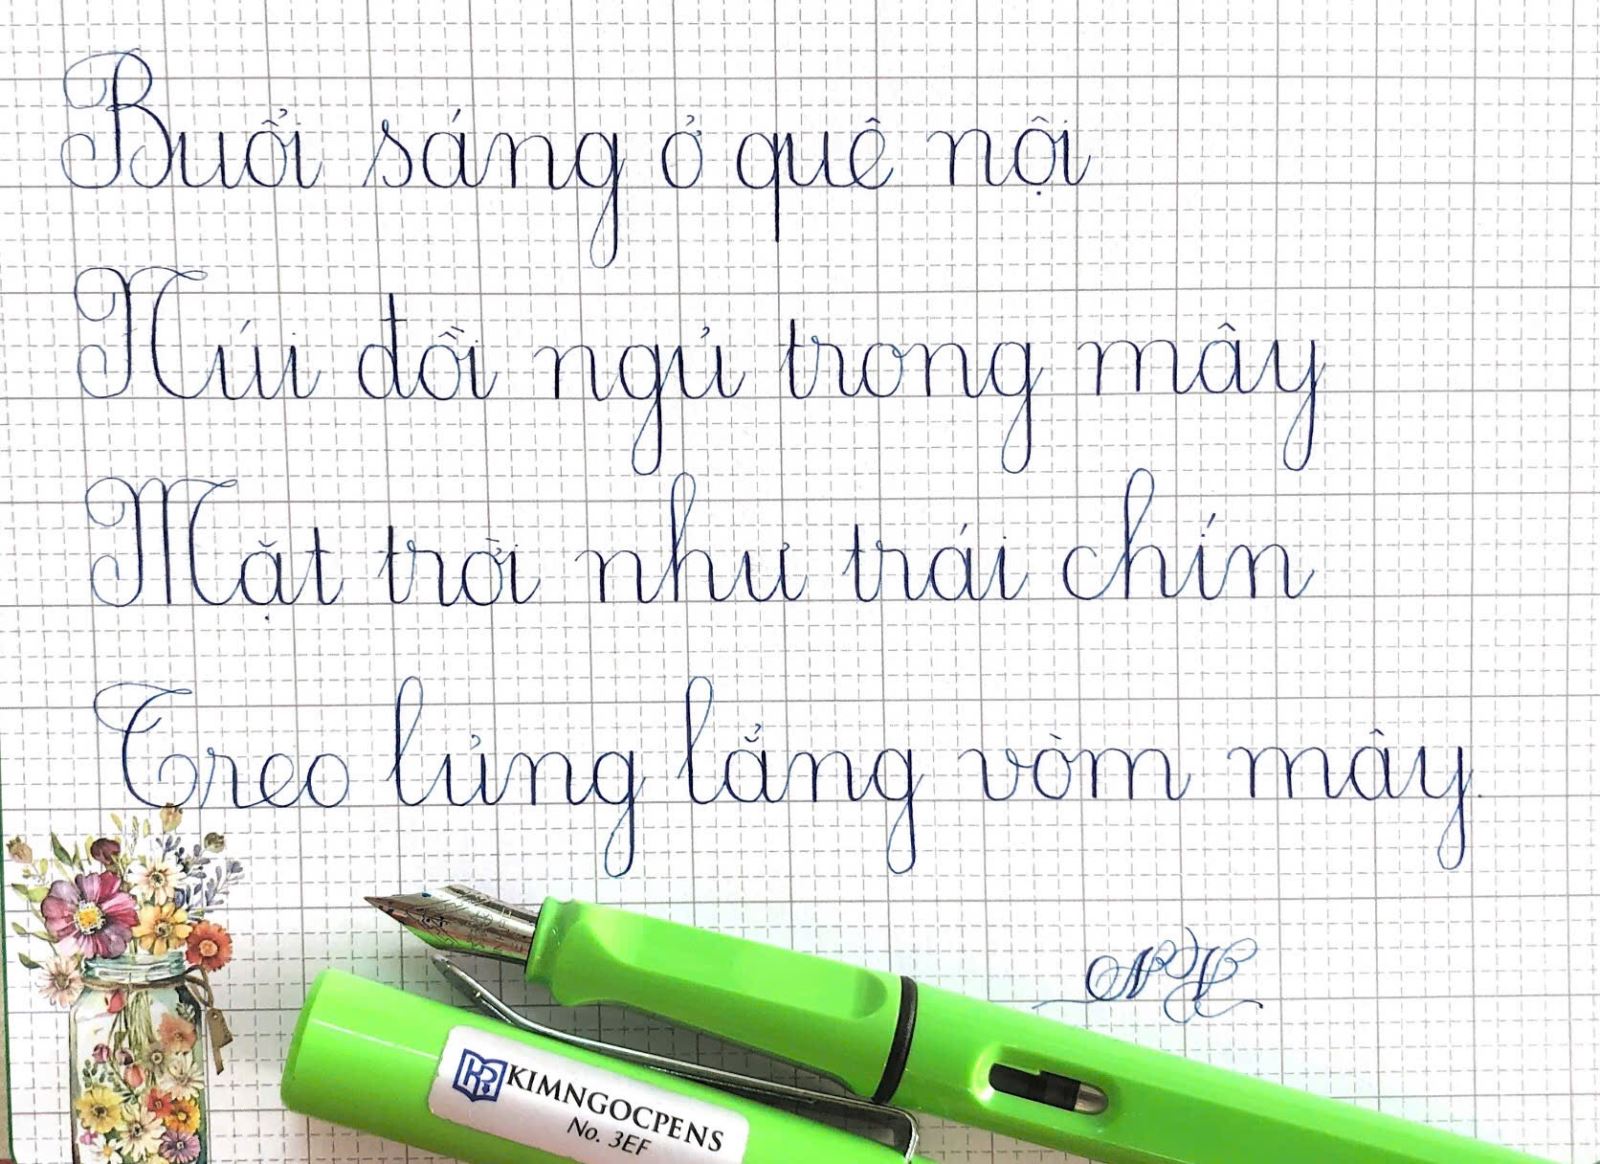 Buổi sáng ở quê nội
Núi đồi ngủ trong mây
Mặt trời như trái chín
Treo lủng lẳng vòm mây.
KIMNGOCPENS
No. 3EF